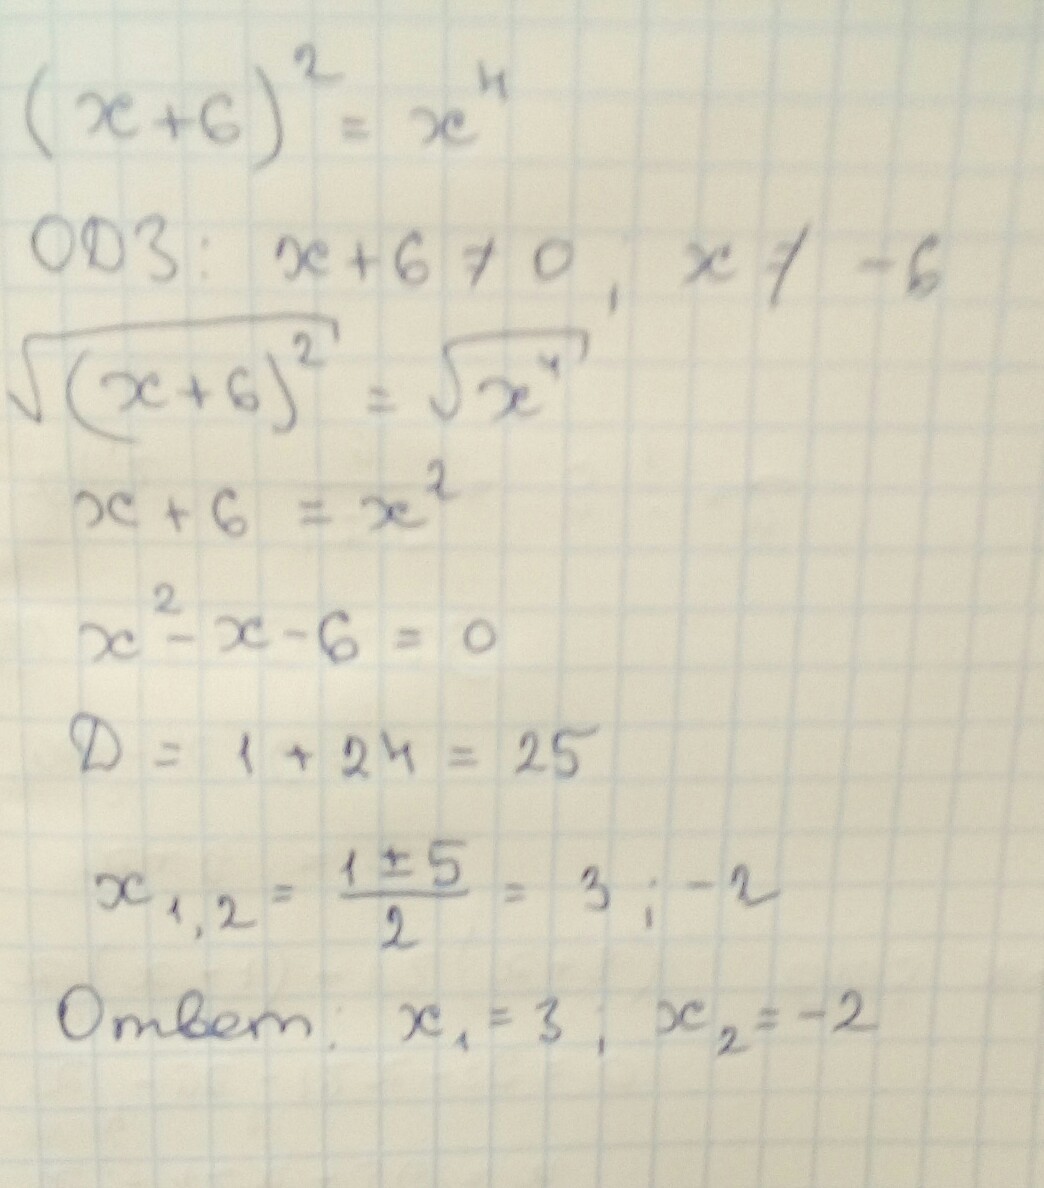 (x+6)² = x⁴
ОДЗ: x+6 ≠ 0; x ≠ -6
√(x+6)² = √x⁴
x + 6 = x²
x² - x - 6 = 0
D = 1 + 24 = 25
x₁,₂ = (1 ± 5)/2 = 3; -2
Ответ: x₁ = 3; x₂ = -2